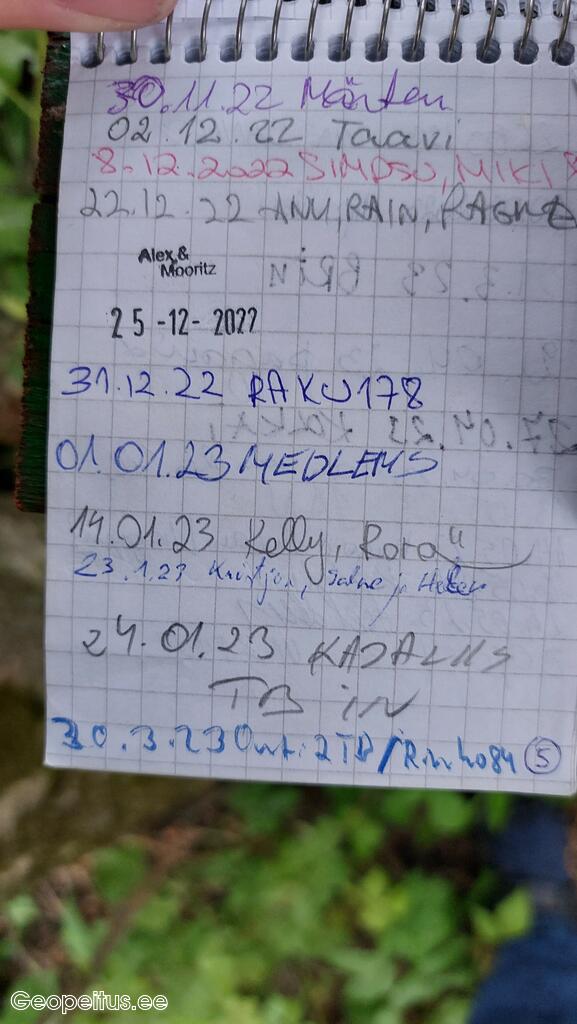 30.11.22 Mänten
02.12.22 Taavi
8.12.2022 SIMPSU, MIKI
22.12.22 ANU, RAIN, RAGNE
Alex &
Mooritz
25-12-2022
31.12.22 RAKU178
01.01.23 MEDLEMS
14.01.23 Kelly, Rora"
23.1.23 Kristjan,
24.01.23
TB in
30.3.23 Ont: 2TB / 5
Geopeitus.ee